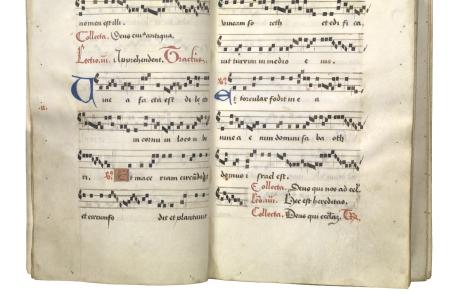 nomen est illi.
Collecta. Deus cuius antiqua.
Lectio .iiii. Apprehendent. Tractus.
Vinea facta est dilecto
in cornu in loco u be
ri. Et maceriam circumdedit
et circumfo dit et plantauit
vineam so reth et edifica
uit turrim in medio e ius.
Et torcular fodit in e a
uinea e nim domini sabaoth
domus israel est.
Collecta. Deus qui nos ad cel
Hec est hereditas.
Collecta. Deus qui eccl